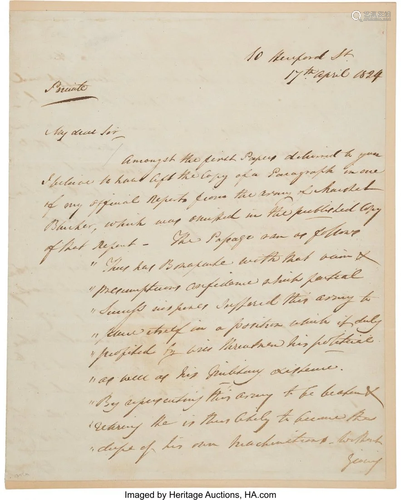 10 Hereford St.
17th April 1824
Private
My dear Sir
Amongst the first Papers delivered to you
I believe I have left the Copy of a Paragraph in one
of my official Reports from the army of Marshal
Blucher, which was omitted in the published Copy
of that Report - The Passage ran as follows
"Thus has Bonaparte with that vain &
presumptuous confidence which partial
Success inspires suffered this army to
place itself in a position which if duly
profited by will threaten his political
"as well as his Military existence.
"By representing this army to be beaten &
he is thus likely to become the
dupe of his own Machinations - without
giving
Imaged by Heritage Auctions, HA.com